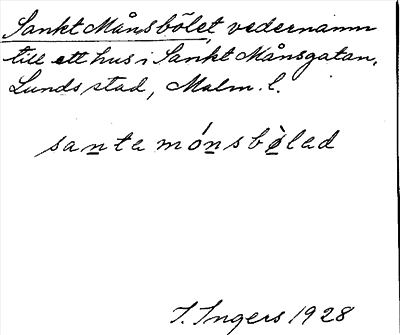 Sankt Månsbölet, vedernamn
till ett hus i Sankt Månsgatan,
Lunds stad, Malm. l.
santa mónsbòlad
I. Ingers 1928